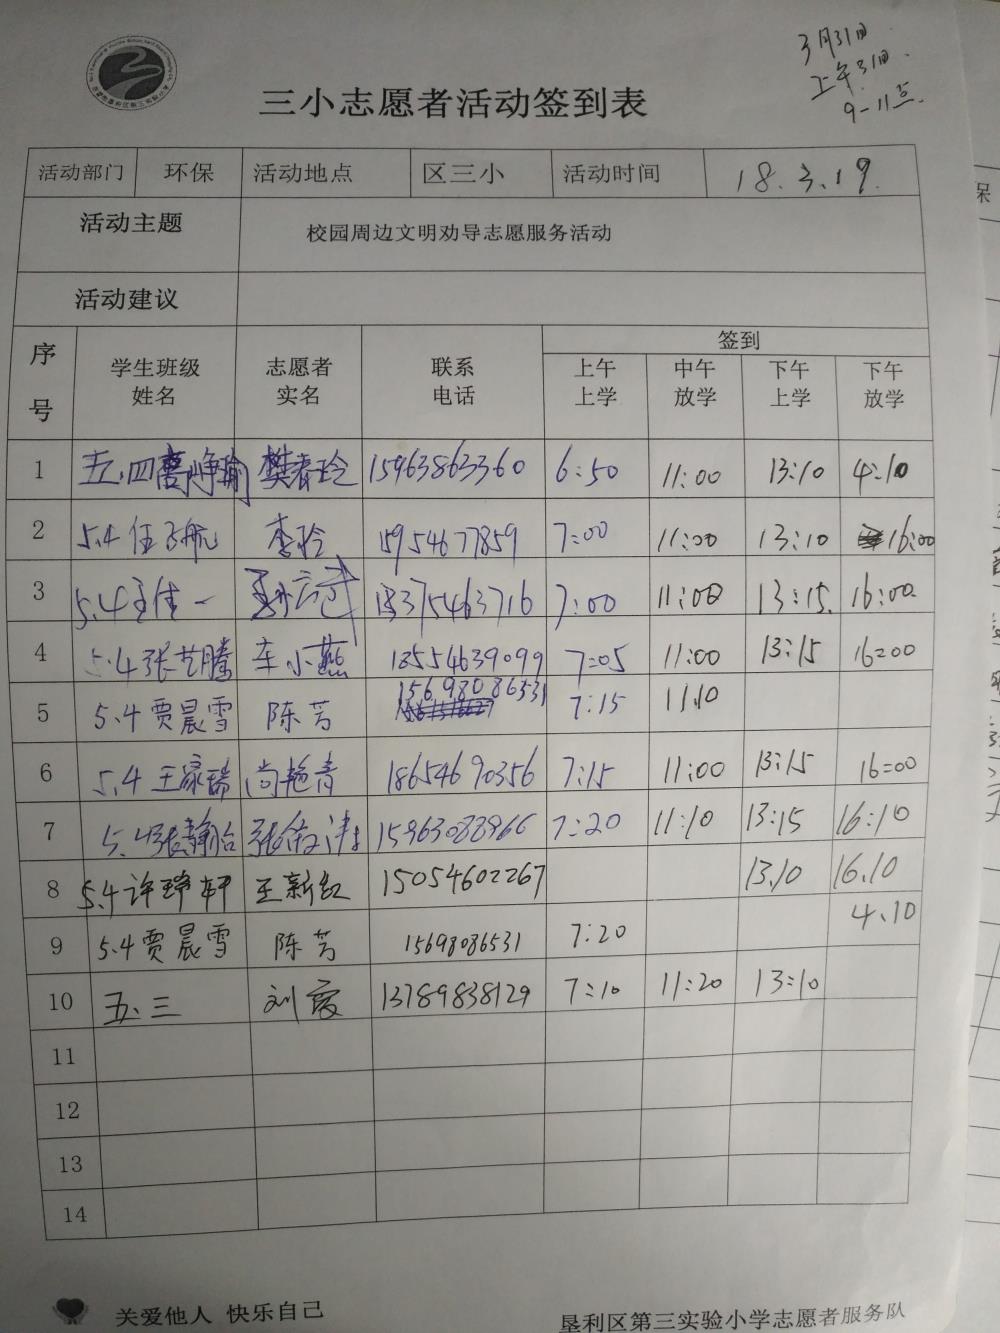 3月31日
上午31日
9-11点
三小志愿者活动签到表
活动部门 环保 活动地点 区三小 活动时间 18.3.19.
活动主题 校园周边文明劝导志愿服务活动
活动建议
序号 学生班级姓名 志愿者实名 联系电话 签到
上午上学 中午放学 下午上学 下午放学
1 五.四 樊春玲 15963863360 6:50 11:00 13:10 4:10
2 5.4 任子航 李玲 15954677859 7:00 11:00 13:10 16:00
3 5.4 王佳一 13375463716 7:00 11:00 13:15. 16:00.
4 5.4 张艺腾 车小燕 18554639099 7:05 11:00 13:15 16:00
5 5.4 贾晨雪 陈芳 15698086531 7:15 11.10
6 5.4 王家瑞 尚艳青 18654690356 7:15 11:00 13:15 16:00
7 5.4 张静怡 15963088966 7:20 11:10 13:15 16:10
8 5.4 许琤轩 王新红 15054602267 13.10 16.10
9 5.4 贾晨雪 陈芳 15698086531 7:20 4.10
10 五.三 刘霞 13789838129 7:10 11:20 13:10
11
12
13
14
关爱他人 快乐自己
垦利区第三实验小学志愿者服务队